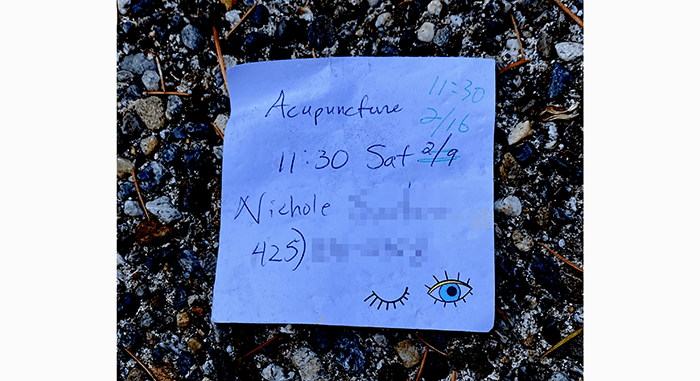 11:30
2/16
Acupuncture
11:30 Sat 2/9
Nichole
425)